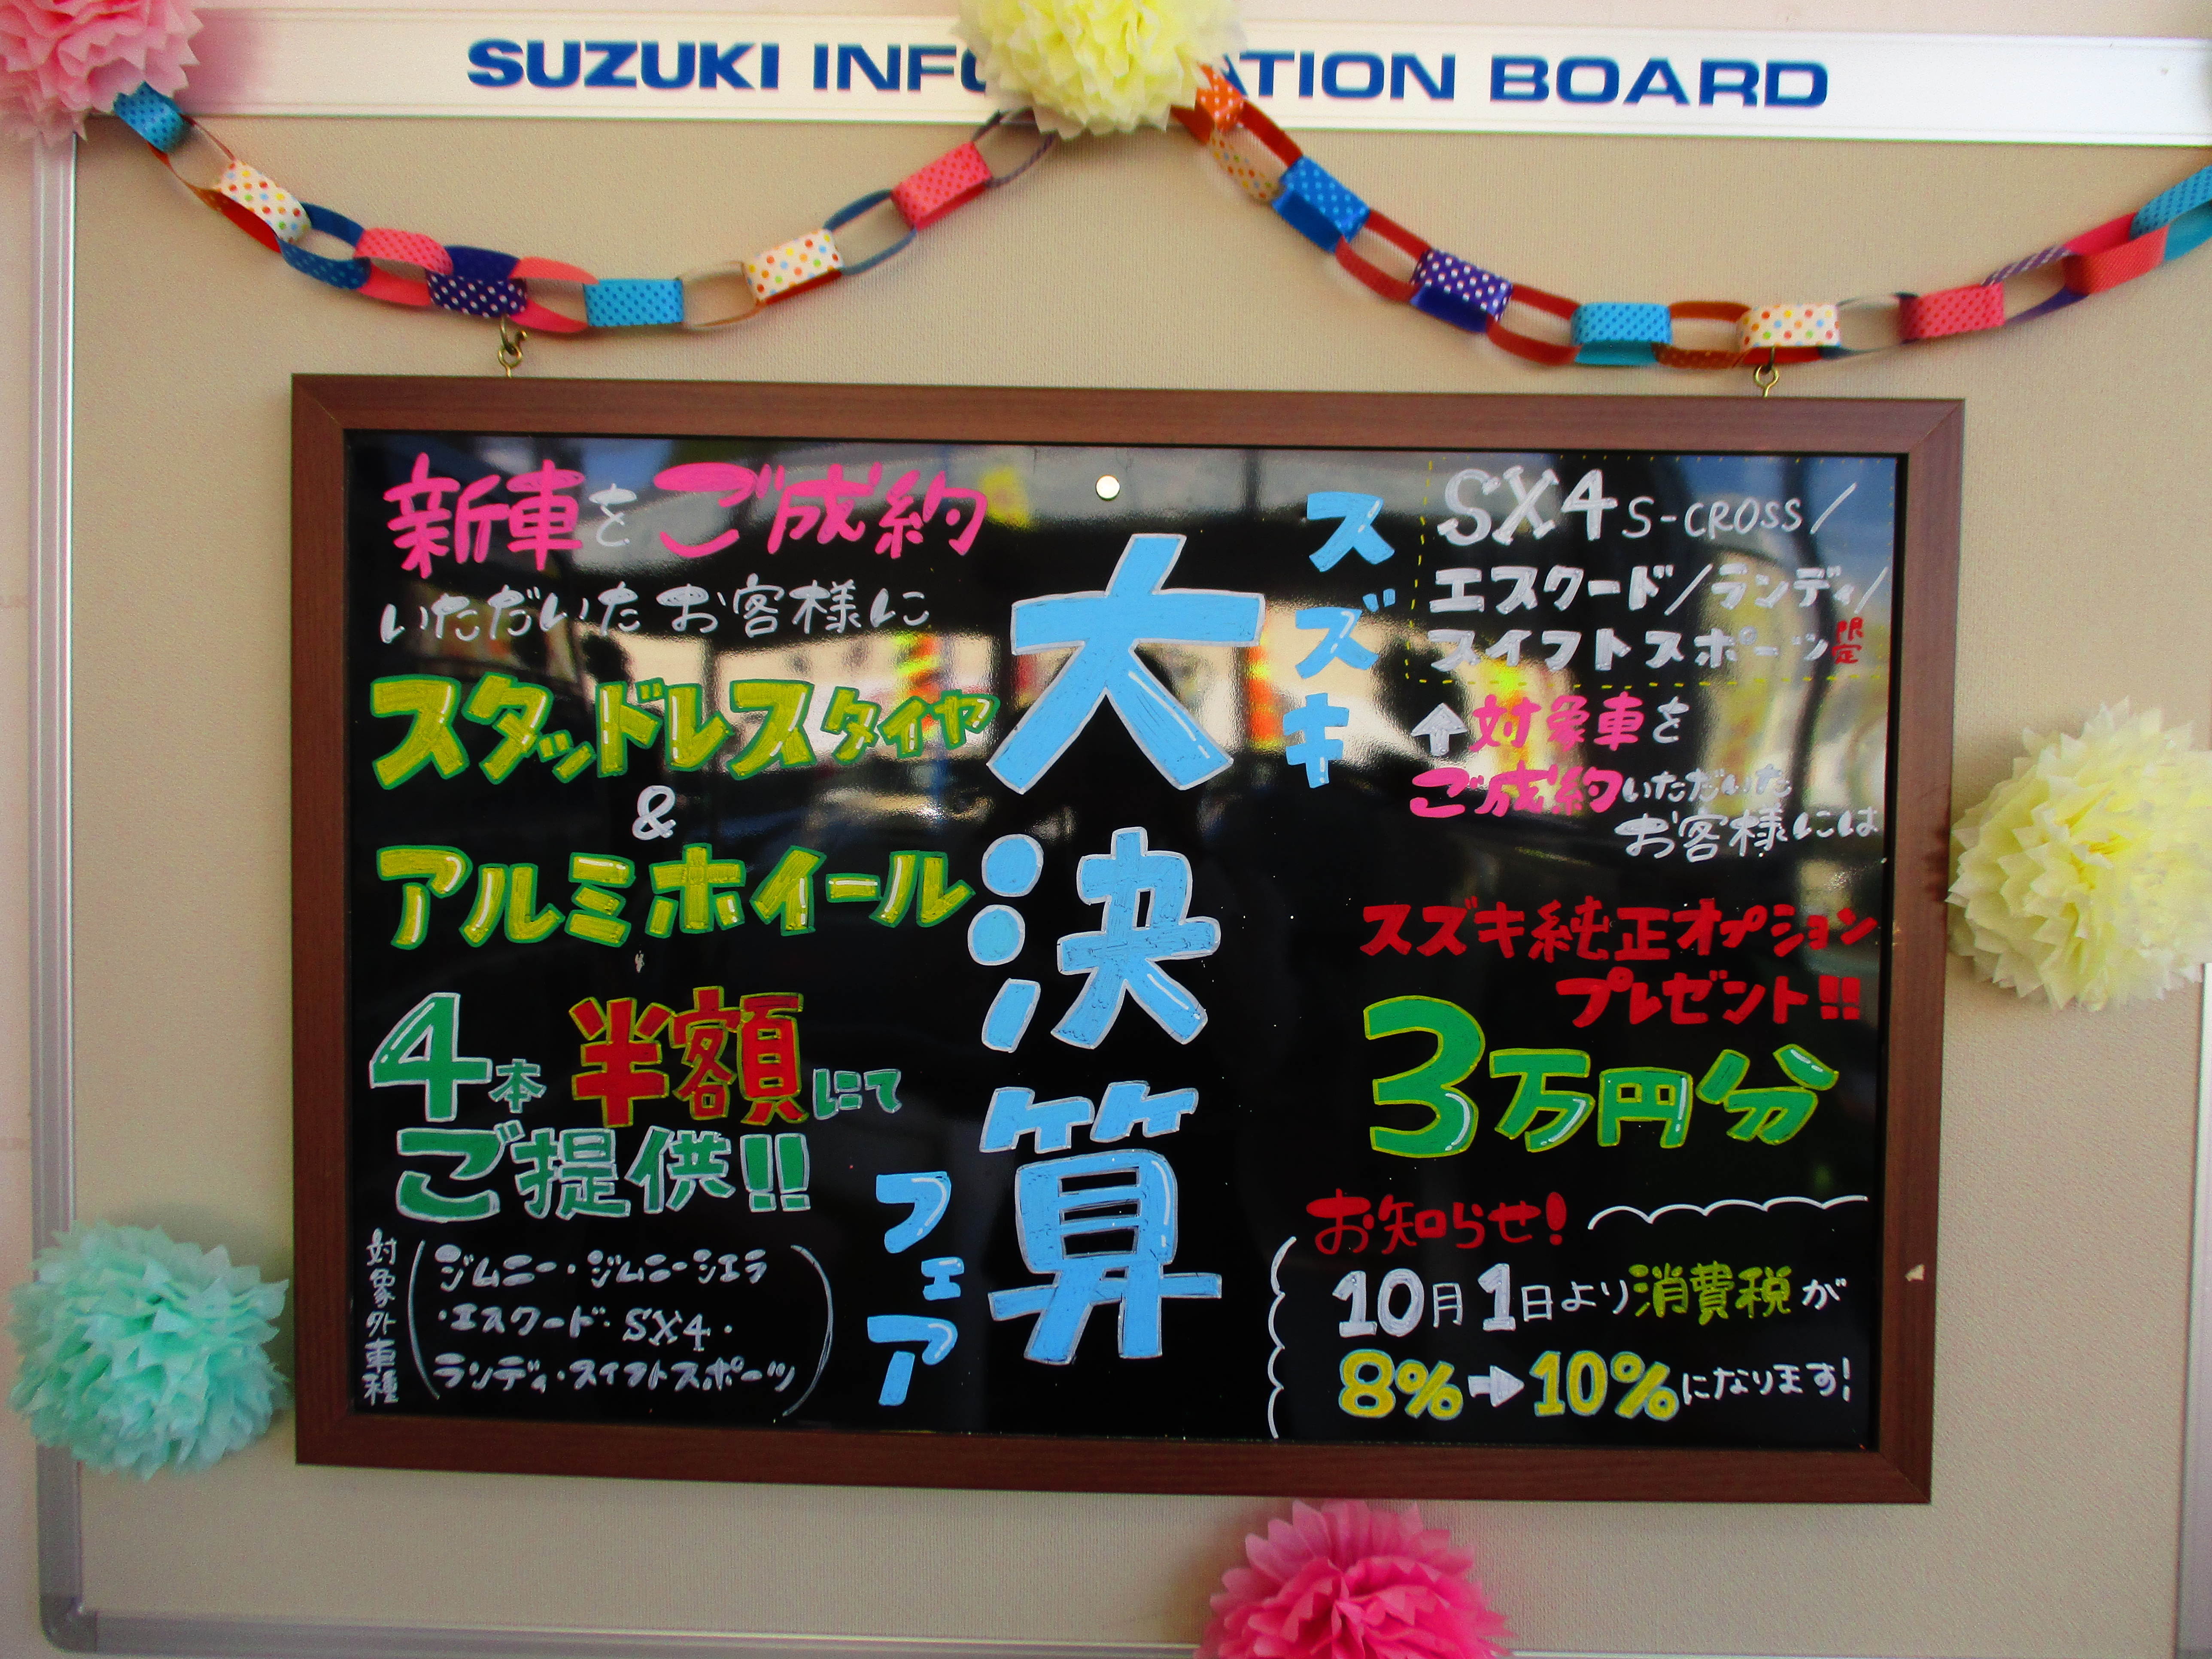 SUZUKI INFO ATION BOARD
スズキ
大決算
フェア
新車をご成約
いただいたお客様に
スタッドレスタイヤ
&
アルミホイール
4本 半額にて
ご提供!!
対象外車種
(ジムニー・ジムニーシエラ
・エスクード・SX4・
ランディ・スイフトスポーツ)
SX4 S-CROSS/
エスクード/ランディ/
スイフトスポーツ限定
↑対象車を
ご成約いただいた
お客様には
スズキ純正オプション
プレゼント!!
3万円分
お知らせ!
10月1日より消費税が
8%➡10%になります!